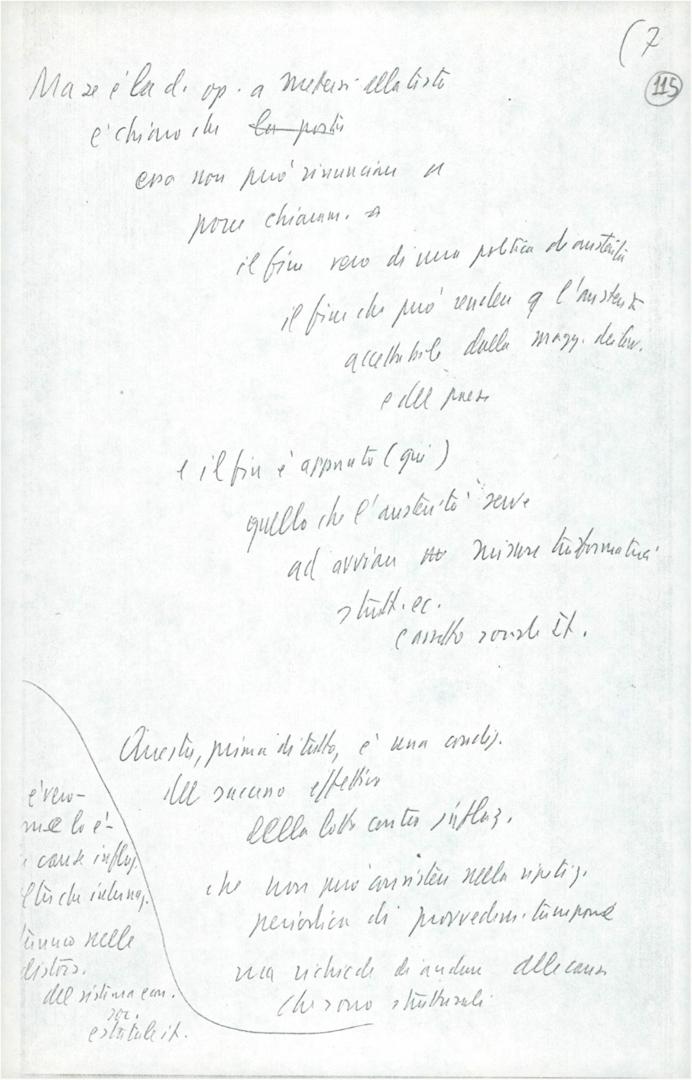 (7
115
Ma se è la d. op. a mettersi alla testa
è chiaro che la parte
essa non può rinunciare a
porre chiaram.
il fine vero di una politica di austerità
il fine che può rendere q l'austerità
accettabile dalla magg. dei lav.
e del paese
e il fine è appunto (qui)
quello che l'austerità serve
ad avviare misure trasformatrici
strutt. ec.
e assetto sociale it.
Questa, prima di tutto, è una condiz.
del successo effettivo
della lotta contro inflaz.
che non può consistere nella ripetiz.
periodica di provvedim. tampone
ma richiede di andare alle cause
che sono strutturali
è vero -
me lo è -
cause inflaz.
oltre che internaz.
stanno nelle
distors.
del sistema econ.
soc.
e statale it.